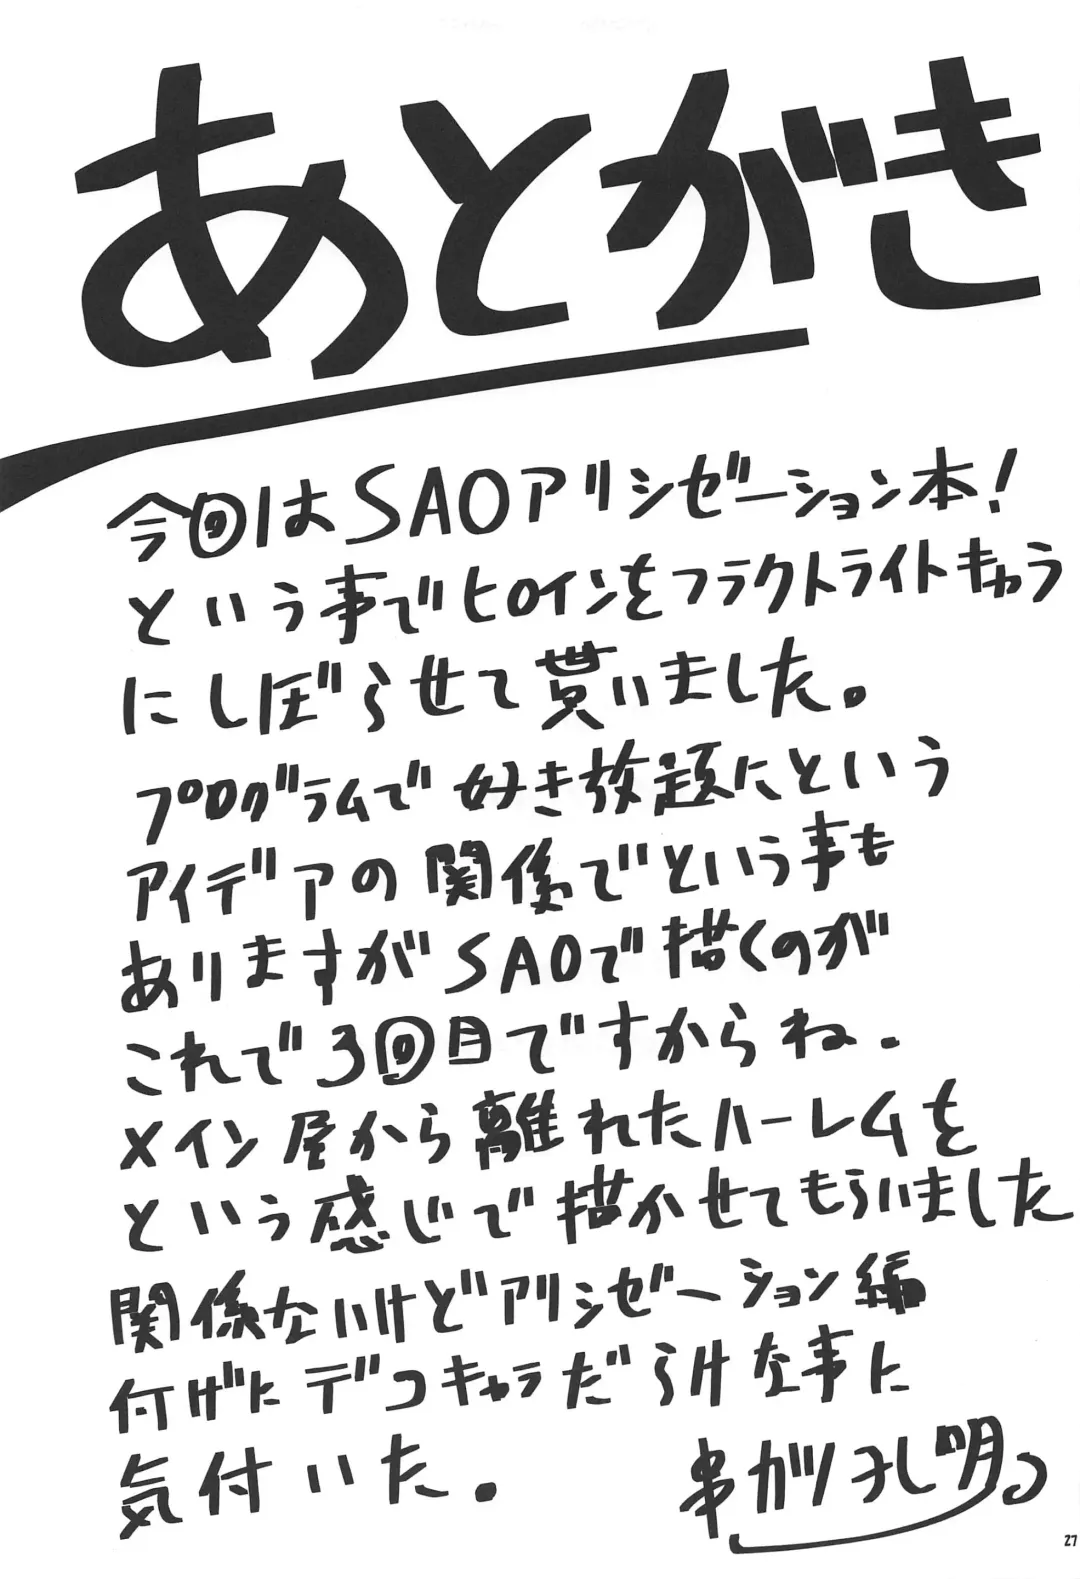 あとがき
今回はSAOアリシゼーション本!
という事でヒロインをフラクトライトキャラ
にしぼらせて貰いました。
プログラムで好き放題にという
アイデアの関係でという事も
ありますがSAOで描くのが
これで3回目ですからね.
メイン屋から離れたハーレムを
という感じで描かせてもらいました
関係ないけどアリシゼーション編
付げにデコキャラだらけな事に
気付いた.
串カツ子し明
27